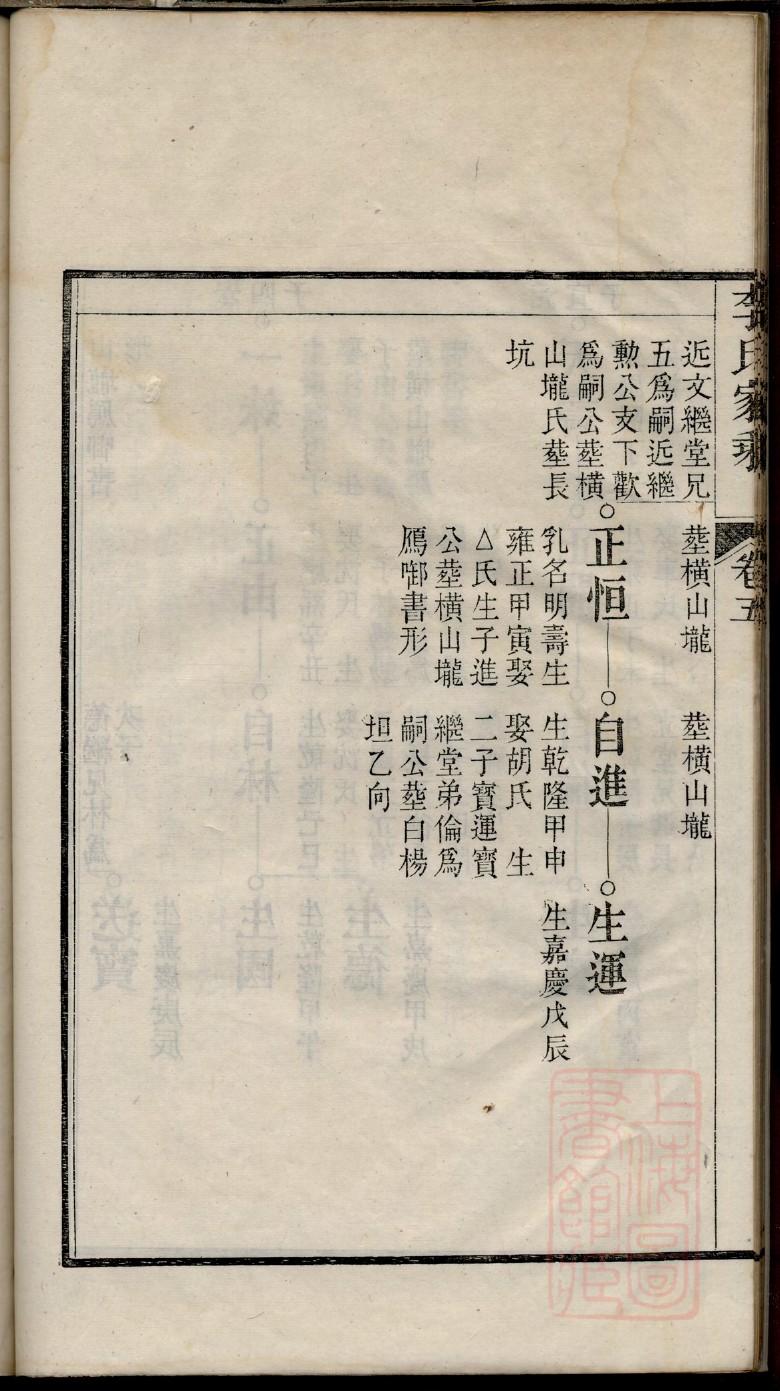 氏家乘
卷五
近文繼堂兄
五爲嗣近繼
勲公支下歡
爲嗣公塟橫
山壠氏塟長
坑
塟橫山壠
正恒
乳名明壽生
雍正甲寅娶
△氏生子進
公塟橫山壠
鴈啣書形
塟橫山壠
自進
生乾隆甲申
娶胡氏 生
二子寶運寶
繼堂弟倫爲
嗣公塟白楊
坦乙向
生運
生嘉慶戊辰
上海圖
書館藏